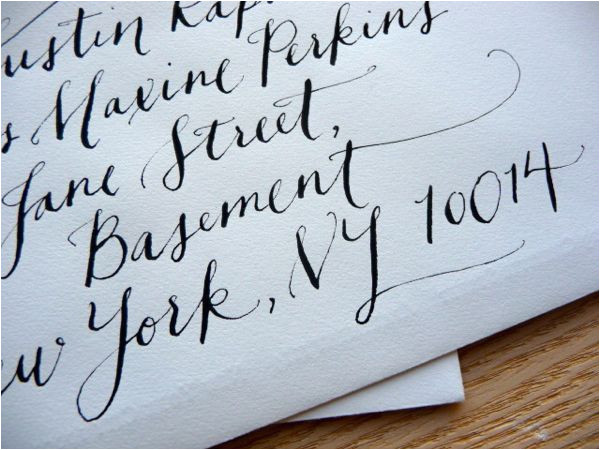 ustin Kap
s Maxine Perkins
Jane Street,
Basement
ew York, NY 10014